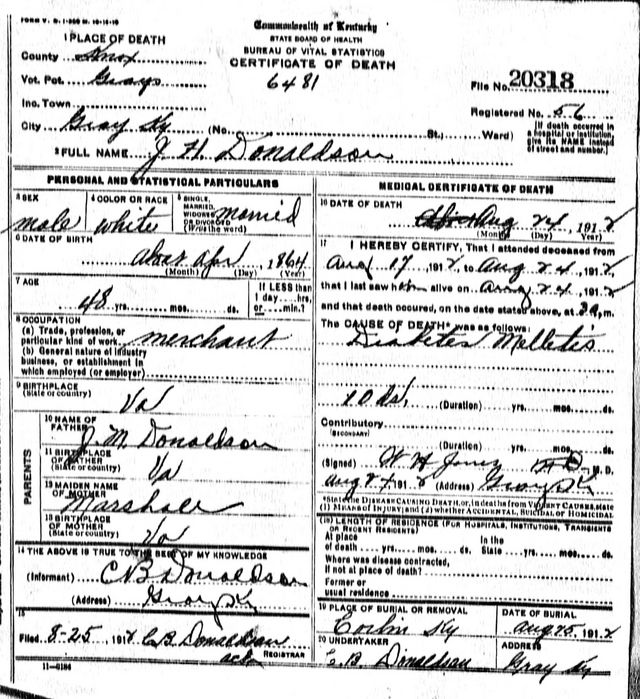 FORM V. S. 1-350 M. 10-16-10
Commonwealth of Kentucky
STATE BOARD OF HEALTH
BUREAU OF VITAL STATISTICS
CERTIFICATE OF DEATH
6481
File No. 20318
Registered No. 56
[If death occurred in a hospital or institution, give its NAME instead of street and number.]
1 PLACE OF DEATH
County Knox
Vot. Pct. Grays
Inc. Town
City Gray Ky (No. St.; Ward)
2 FULL NAME J. H. Donaldson
PERSONAL AND STATISTICAL PARTICULARS
3 SEX male
4 COLOR OR RACE white
5 SINGLE, MARRIED, WIDOWED OR DIVORCED (Write the word) married
6 DATE OF BIRTH
Apr 1864
(Month) (Day) (Year)
7 AGE
48 yrs. mos. ds.
If LESS than 1 day hrs. or min.?
8 OCCUPATION
(a) Trade, profession, or particular kind of work merchant
(b) General nature of industry business, or establishment in which employed (or employer)
9 BIRTHPLACE
(State or country) Va
PARENTS
10 NAME OF FATHER J. M. Donaldson
11 BIRTHPLACE OF FATHER (State or country) Va
12 MAIDEN NAME OF MOTHER Marshall
13 BIRTHPLACE OF MOTHER (State or country) Va
14 THE ABOVE IS TRUE TO THE BEST OF MY KNOWLEDGE
(Informant) C B Donaldson
(Address) Gray Ky
15
Filed 8-25 1912 C B Donaldson
REGISTRAR
11-6186
MEDICAL CERTIFICATE OF DEATH
16 DATE OF DEATH
Aug 24, 1912
(Month) (Day) (Year)
17 I HEREBY CERTIFY, That I attended deceased from
Aug 17 1912, to Aug 24, 1912,
that I last saw him alive on Aug 24, 1912,
and that death occured, on the date stated above, at m.
The CAUSE OF DEATH* was as follows:
Diabetes Melletis
10 ds (Duration) yrs. mos. ds.
Contributory
(SECONDARY)
(Duration) yrs. mos. ds.
(Signed) W H Jones M.D.
1912 (Address) Gray Ky
*State the DISEASE CAUSING DEATH, or, in deaths from VIOLENT CAUSES, state (1) MEANS OF INJURY; and (2) whether ACCIDENTAL, SUICIDAL or HOMICIDAL
18 LENGTH OF RESIDENCE (FOR HOSPITALS, INSTITUTIONS, TRANSIENTS OR RECENT RESIDENTS)
At place of death yrs. mos. ds. In the State yrs. mos. ds.
Where was disease contracted, if not at place of death?
Former or usual residence
19 PLACE OF BURIAL OR REMOVAL
Corbin Ky
DATE OF BURIAL
Aug 25, 1912
20 UNDERTAKER
C. B. Donaldson
ADDRESS
Gray Ky